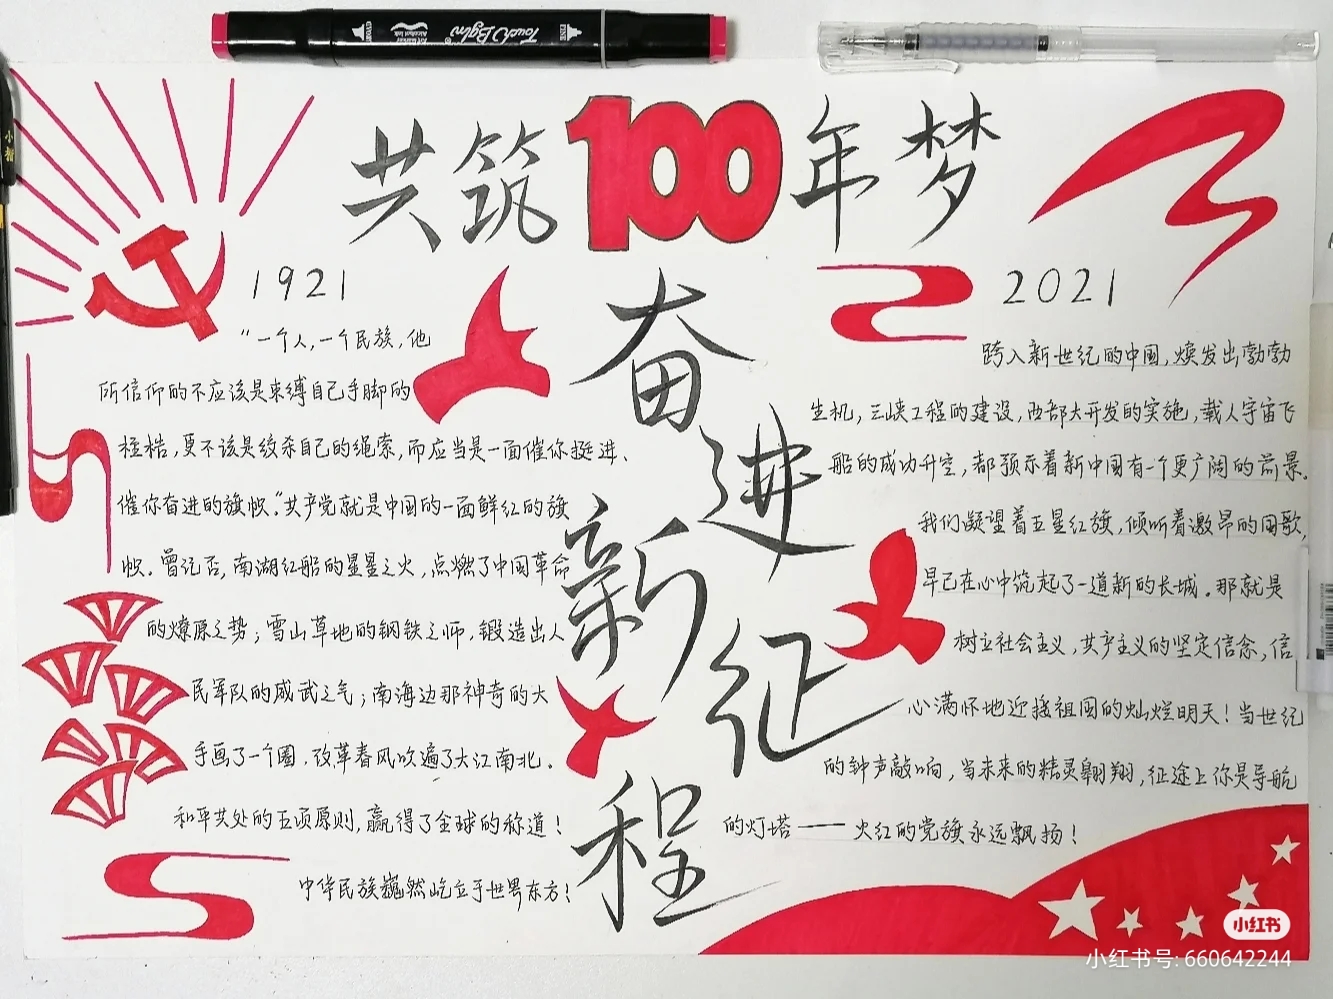 Touch
LINE
小智
共筑100年梦
奋进新征程
1921
“一个人,一个民族,他
所信仰的不应该是束缚自己手脚的
桎梏,更不该是绞杀自己的绳索,而应当是一面催你挺进、
催你奋进的旗帜。”共产党就是中国的一面鲜红的旗
帜。曾记否,南湖红船的星星之火,点燃了中国革命
的燎原之势;雪山草地的钢铁之师,锻造出人
民军队的威武之气;南海边那神奇的大
手画了一个圈,改革春风吹遍了大江南北。
和平共处的五项原则,赢得了全球的称道!
中华民族巍然屹立于世界东方!
2021
跨入新世纪的中国,焕发出勃勃
生机,三峡工程的建设,西部大开发的实施,载人宇宙飞
船的成功升空,都预示着新中国有一个更广阔的前景。
我们凝望着五星红旗,倾听着激昂的国歌,
早已在心中筑起了一道新的长城。那就是
树立社会主义,共产主义的坚定信念,信
心满怀地迎接祖国的灿烂明天!当世纪
的钟声敲响,当未来的精灵翱翔,征途上你是导航
的灯塔——火红的党旗永远飘扬!
小红书
小红书号: 660642244